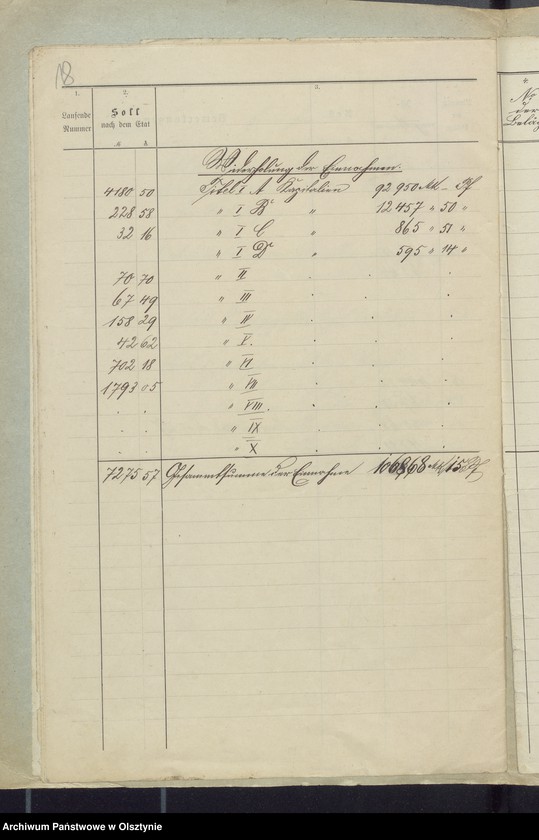 18
1. 2. 3.
Laufende Nummer
Soll nach dem Etat
M S
No der Beläg
Widerholung der Einnahmen.
4180 50 Titel I A Kapitalien 92 950 Mk – Pf
228 58 " I B " 12 457 " 50 "
32 16 " I C " 865 " 51 "
" I D " 595 " 14 "
70 70 " II . . .
67 49 " III . . .
158 29 " IV . . .
42 62 " V. . . .
702 18 " VI . . .
1793 05 " VII . . .
. . " VIII. . . .
. . " IX . . .
. . " X . . .
7275 57 Gesammtsumme der Einnahme 106868 Mk 15 Pf
Archiwum Państwowe w Olsztynie